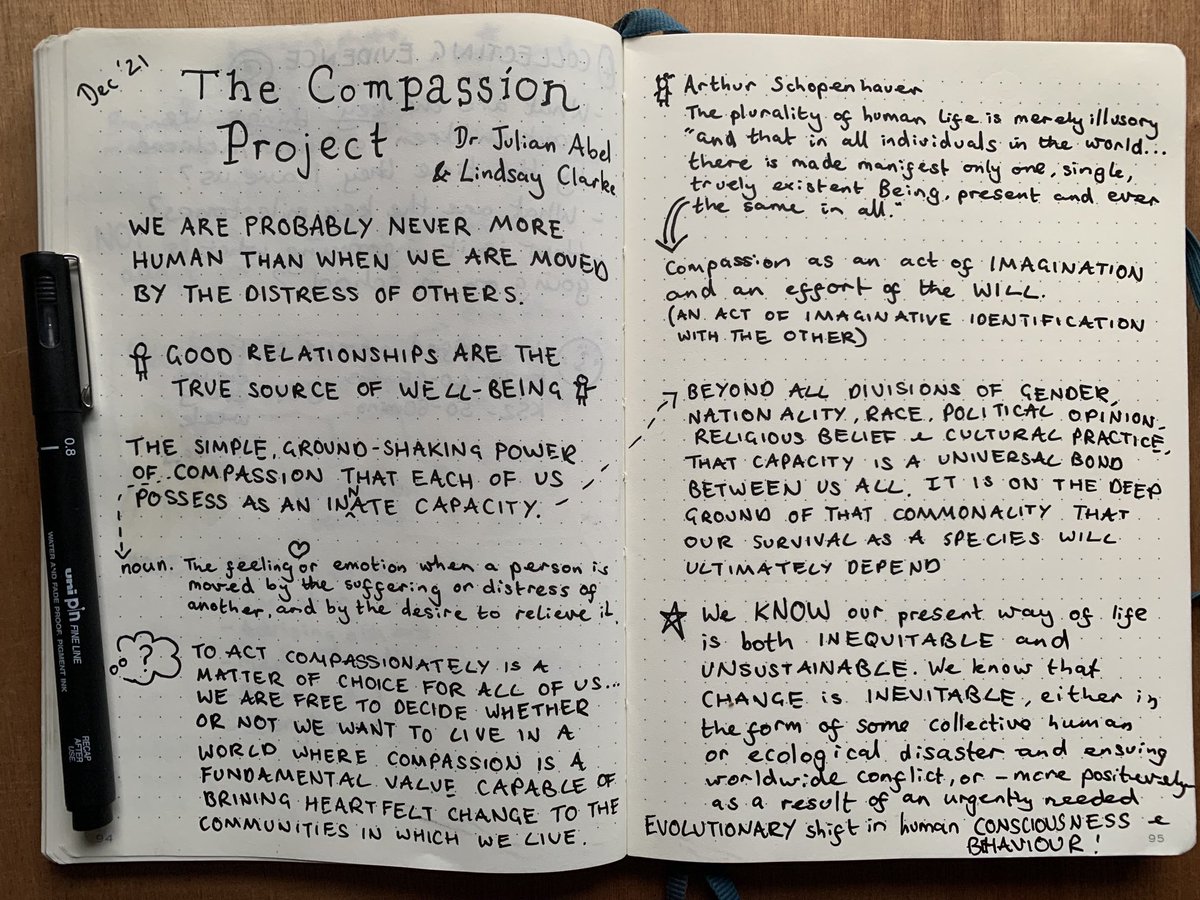 Dec '21
The Compassion
Project
Dr Julian Abel
& Lindsay Clarke
WE ARE PROBABLY NEVER MORE
HUMAN THAN WHEN WE ARE MOVED
BY THE DISTRESS OF OTHERS.
GOOD RELATIONSHIPS ARE THE
TRUE SOURCE OF WELL-BEING
THE SIMPLE, GROUND-SHAKING POWER
OF COMPASSION THAT EACH OF US
POSSESS AS AN INNATE CAPACITY.
noun. The feeling or emotion when a person is
moved by the suffering or distress of
another, and by the desire to relieve it.
?
TO ACT COMPASSIONATELY IS A
MATTER OF CHOICE FOR ALL OF US...
WE ARE FREE TO DECIDE WHETHER
OR NOT WE WANT TO LIVE IN A
WORLD WHERE COMPASSION IS A
FUNDAMENTAL VALUE CAPABLE OF
BRINING HEARTFELT CHANGE TO THE
COMMUNITIES IN WHICH WE LIVE.
94
0.8
uni pin FINE LINE
WATER AND FADE PROOF, PIGMENT INK
RECAP
AFTER
USE
Arthur Schopenhauer
The plurality of human life is merely illusory
"and that in all individuals in the world...
there is made manifest only one, single,
truely existent Being, present and ever
the same in all."
Compassion as an act of IMAGINATION
and an effort of the WILL.
(AN ACT OF IMAGINATIVE IDENTIFICATION
WITH THE OTHER)
BEYOND ALL DIVISIONS OF GENDER,
NATIONALITY, RACE, POLITICAL OPINION,
RELIGIOUS BELIEF & CULTURAL PRACTICE,
THAT CAPACITY IS A UNIVERSAL BOND
BETWEEN US ALL. IT IS ON THE DEEP
GROUND OF THAT COMMONALITY THAT
OUR SURVIVAL AS A SPECIES WILL
ULTIMATELY DEPEND
We KNOW our present way of life
is both INEQUITABLE and
UNSUSTAINABLE. We know that
CHANGE is INEVITABLE, either in
the form of some collective human
or ecological disaster and ensuing
worldwide conflict, or - more positively
as a result of an urgently needed
EVOLUTIONARY shift in human CONSCIOUSNESS &
BEHAVIOUR!
95